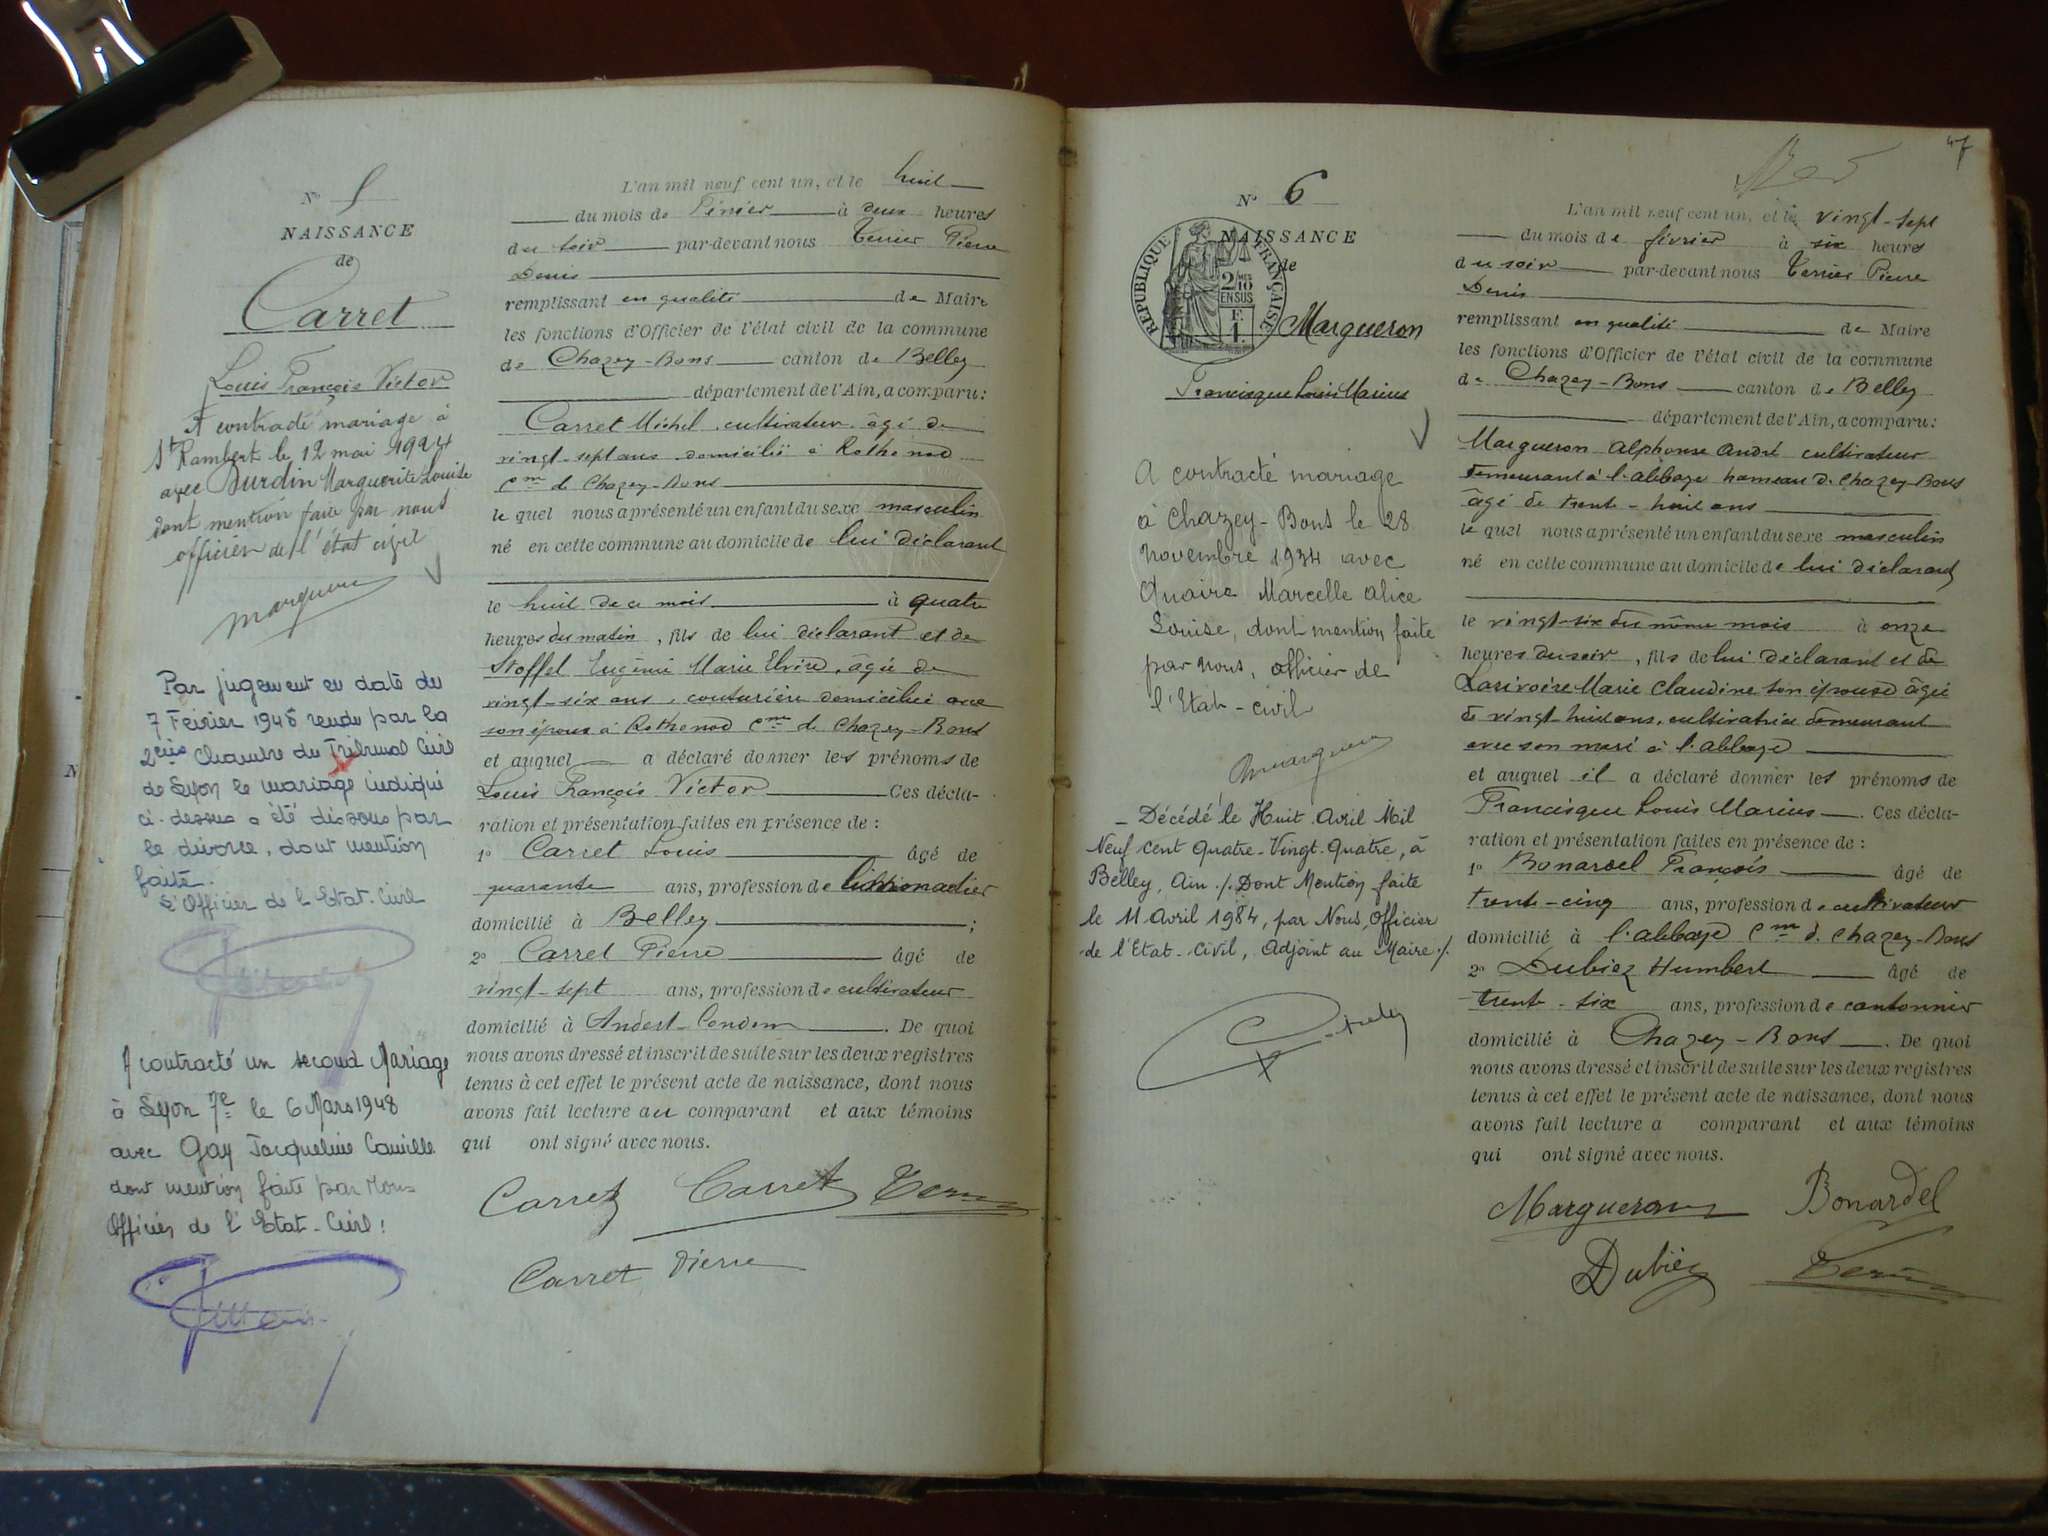 N° 5
NAISSANCE
de
Carret
Louis François Victor
A contracté mariage à
St Rambert le 12 mai 1924
avec Burdin Marguerite Louise
dont mention faite par nous
officier de l'état civil
Par jugement en date du
7 Février 1945 rendu par la
2eme Chambre du Tribunal Civil
de Lyon le mariage indiqué
ci-dessus a été dissous par
le divorce, dont mention
faite.
L'Officier de l'Etat-Civil
A contracté un second Mariage
à Lyon 7e le 6 Mars 1948
avec Gay Jacqueline Camille
dont mention faite par Nous
Officier de l'Etat-Civil!
L'an mil neuf cent un, et le huit
du mois de Février à deux heures
du soir par-devant nous Terrier Pierre
Denis
remplissant en qualité de Maire
les fonctions d'Officier de l'état civil de la commune
de Chazey-Bons canton de Belley
département de l'Ain, a comparu:
Carret Michel, cultivateur, âgé de
vingt-sept ans domicilié à Rothonod
Cne de Chazey-Bons
lequel nous a présenté un enfant du sexe masculin
né en cette commune au domicile de lui déclarant
le huit de ce mois à quatre
heures du matin, fils de lui déclarant et de
Stoffel Eugénie Marie Elvire, âgée de
vingt-six ans, couturière domiciliée avec
son époux à Rothonod Cne de Chazey-Bons
et auquel a déclaré donner les prénoms de
Louis François Victor Ces décla-
ration et présentation faites en présence de :
1° Carret Louis âgé de
quarante ans, profession de limonadier
domicilié à Belley ;
2° Carret Pierre âgé de
vingt-sept ans, profession de cultivateur
domicilié à Andert-Condon. De quoi
nous avons dressé et inscrit de suite sur les deux registres
tenus à cet effet le présent acte de naissance, dont nous
avons fait lecture au comparant et aux témoins
qui ont signé avec nous.
Carret Carret Terrier
Carret Pierre
47
N° 6
NAISSANCE
de
RÉPUBLIQUE FRANÇAISE
2/10 EN SUS
Margueron
Francisque Louis Marius
A contracté mariage
à Chazey-Bons le 28
Novembre 1934 avec
Quaire Marcelle Alice
Louise, dont mention faite
par nous, officier de
l'Etat-civil
Margueron
- Décédé le Huit Avril Mil
Neuf cent Quatre-Vingt-Quatre, à
Belley, Ain ./. Dont Mention faite
le 11 Avril 1984, par Nous, Officier
de l'Etat-Civil, Adjoint au Maire ./.
L'an mil neuf cent un, et le vingt-sept
du mois de février à six heures
du soir par-devant nous Terrier Pierre
Denis
remplissant en qualité de Maire
les fonctions d'Officier de l'état civil de la commune
de Chazey-Bons canton de Belley
département de l'Ain, a comparu:
Margueron Alphonse André cultivateur
demeurant à l'abbaye hameau de Chazey-Bons
âgé de trente-huit ans
lequel nous a présenté un enfant du sexe masculin
né en cette commune au domicile de lui déclarant
le vingt-six du même mois à onze
heures du soir, fils de lui déclarant et de
Larivoire Marie Claudine son épouse âgée
de vingt-huit ans, cultivatrice demeurant
avec son mari à l'abbaye
et auquel il a déclaré donner les prénoms de
Francisque Louis Marius. Ces décla-
ration et présentation faites en présence de :
1° Bonardel François âgé de
trente-cinq ans, profession de cultivateur
domicilié à l'abbaye Cne de Chazey-Bons
2° Dubiez Humbert âgé de
trente-six ans, profession de cantonnier
domicilié à Chazey-Bons. De quoi
nous avons dressé et inscrit de suite sur les deux registres
tenus à cet effet le présent acte de naissance, dont nous
avons fait lecture a comparant et aux témoins
qui ont signé avec nous.
Margueron Bonardel
Dubiez Terrier